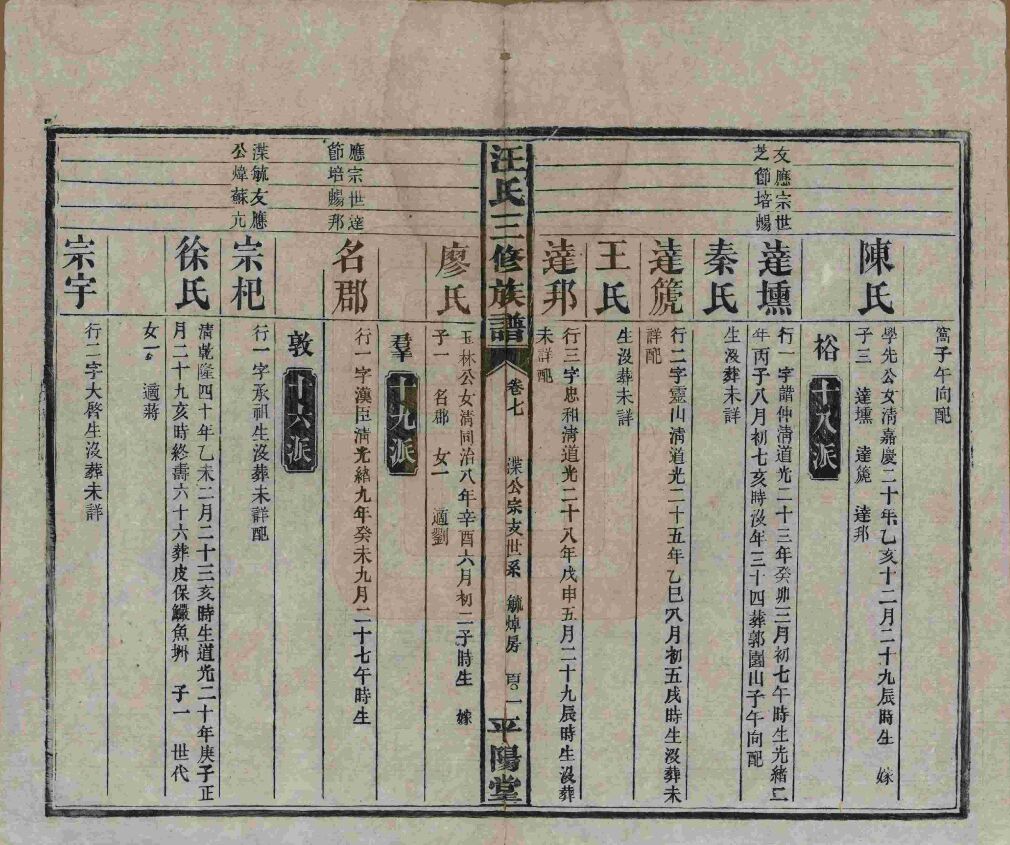 友應宗世
芝節培暢
窩子午向配
陳氏
學先公女清嘉慶二十年乙亥十二月二十九辰時生 嫁
子三 達壎 達篪 達邦
裕 十八派
達壎
行一字諧仲清道光二十三年癸卯三月初七午時生光緒二
年丙子八月初七亥時沒年三十四葬郭園山子午向配
秦氏
生沒葬未詳
達篪
行二字靈山清道光二十五年乙巳八月初五戌時生沒葬未
詳配
王氏
生沒葬未詳
達邦
行三字忠和清道光二十八年戊申五月二十九辰時生沒葬
未詳配
汪氏三修族譜 卷七 渫公宗支世系 毓焯房 一 平陽堂
應宗世達
節培暢邦
渫毓友應
公煒蘇亢
廖氏
玉林公女清同治八年辛酉六月初二子時生 嫁
子一 名郡 女一 適劉
羣 十九派
名郡
行一字漢臣清光緒九年癸未九月二十七午時生
敦 十六派
宗杞
行一字承祖生沒葬未詳配
徐氏
清乾隆四十年乙未二月二十三亥時生道光二十年庚子正
月二十九亥時終壽六十六葬皮保鱺魚坳 子一 世代
女一 適蔣
宗宇
行二字大啓生沒葬未詳